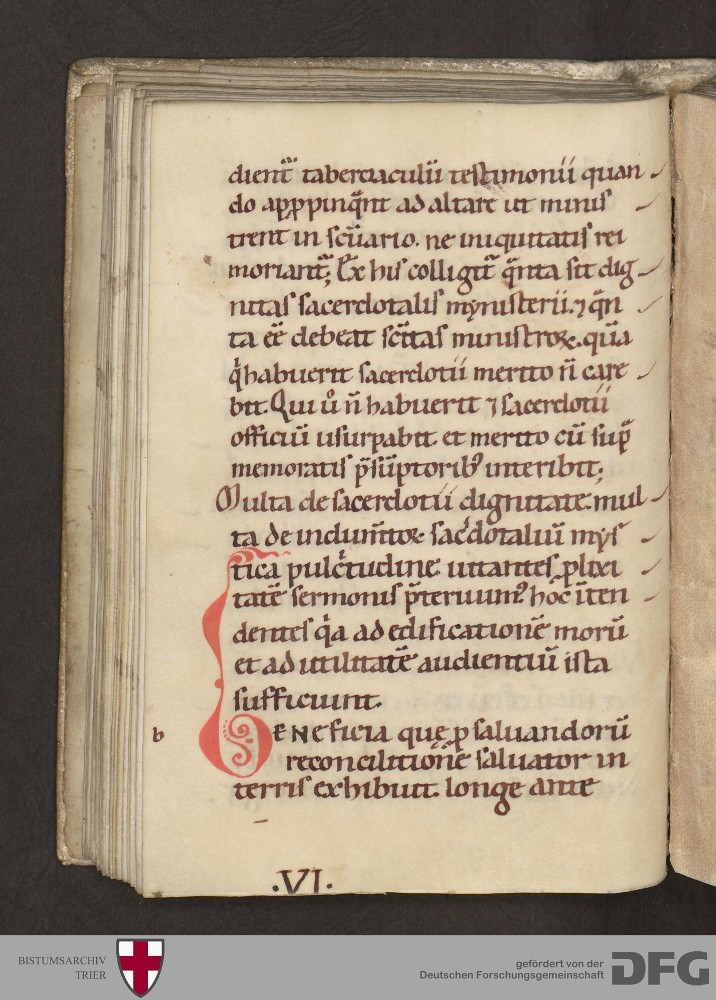 dient̃ tabernaculũ testimonii quan-
do aꝓpinq̃nt ad altare ut minis-
trent in sc̃uario. ne iniquitatis rei
moriant̃; Ex his colligit̃ q̃nta sit dig-
nitas sacerdotalis mynisterii. ⁊ q̃n-
ta eẽ debeat sc̃itas ministroꝝ. quã
q̇ habuerit sacerdotii merito ñ care-
bit. Qui ů ñ habuerit ⁊ sacerdotii
officiũ usurpabit et merito cũ sup̃
memoratis p̃sũptorib; interibit;
Multa de sacerdotii dignitate. mul-
ta de indum̃toꝝ sac̓dotaliũ mys-
tica pulc̓tudine uitantes ꝓlixi-
tatẽ sermonis p̃teriuimꝰ hoc ĩten-
dentes q̇a ad edificationẽ morũ
et ad utilitatẽ audientiũ ista
sufficiunt.
b BENeficia quę ꝓ saluandorũ
reconciliationẽ saluator in
terris exhibuit. longe ante
.VI.
BISTUMSARCHIV
TRIER
gefördert von der
Deutschen Forschungsgemeinschaft
DFG